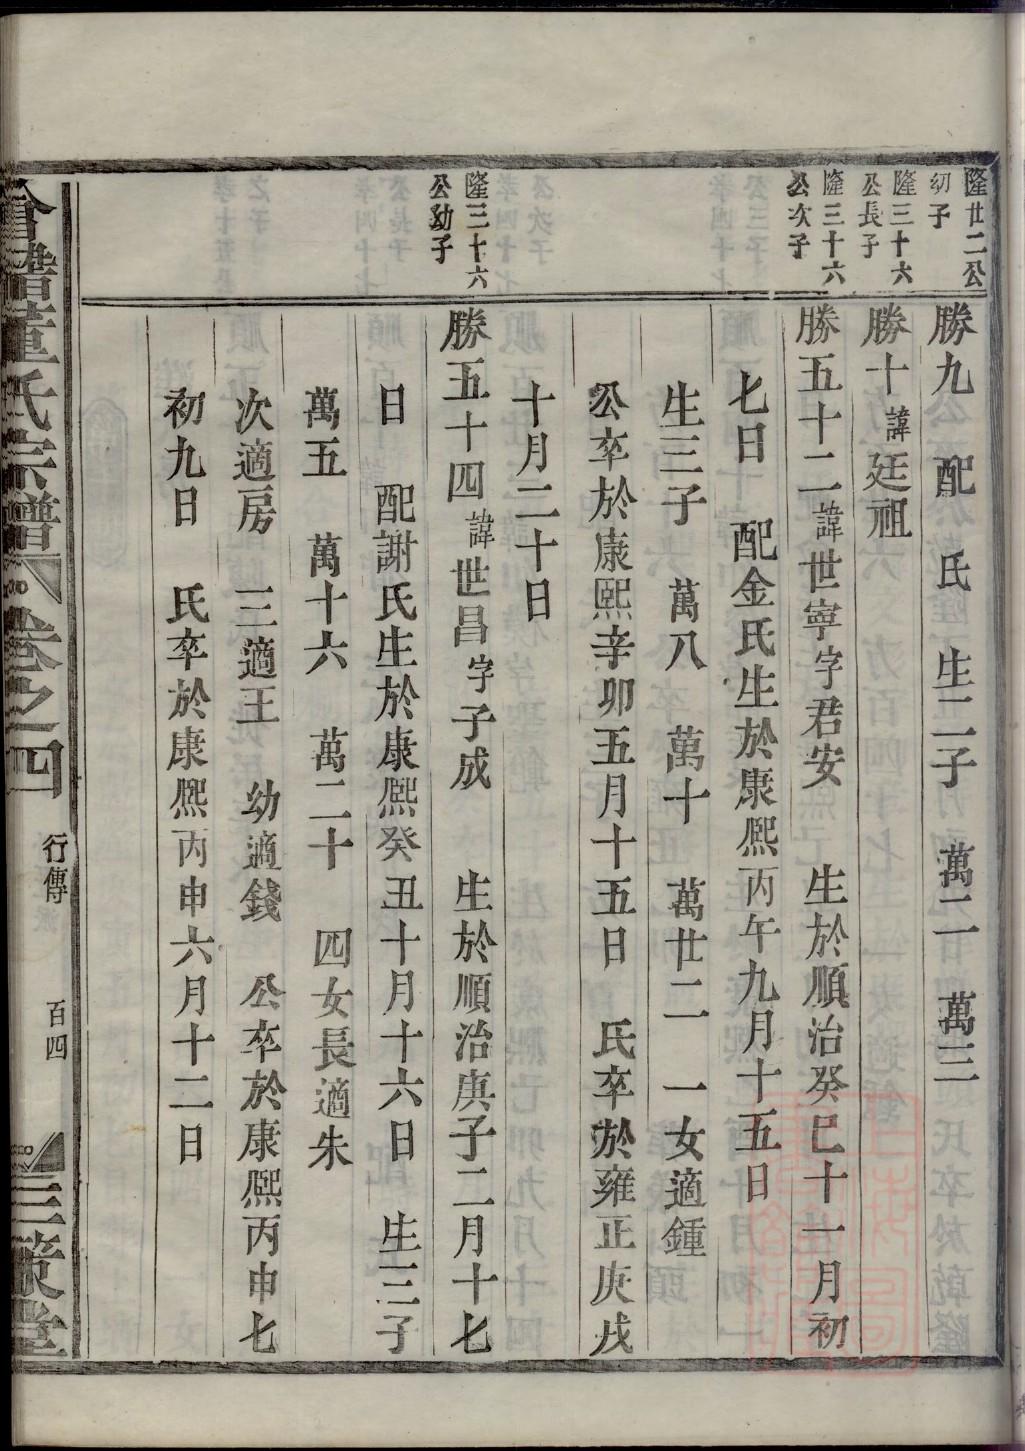 隆廿二公
幼子
勝九　配　氏　生二子　萬二　萬三
隆三十六
公長子
勝十諱廷祖
隆三十六
公次子
勝五十二諱世寧字君安　生於順治癸巳十一月初
七日　配金氏生於康熙丙午九月十五日
生三子　萬八　萬十　萬廿二　一女適鍾
公卒於康熙辛卯五月十五日　氏卒於雍正庚戌
十月二十日
隆三十六
公幼子
勝五十四諱世昌字子成　生於順治庚子二月十七
日　配謝氏生於康熙癸丑十月十六日　生三子
萬五　萬十六　萬二十　四女長適朱
次適房　三適王　幼適錢　公卒於康熙丙申七
初九日　氏卒於康熙丙申六月十二日
會譜董氏宗譜　卷之四
行傳
百四
三策堂